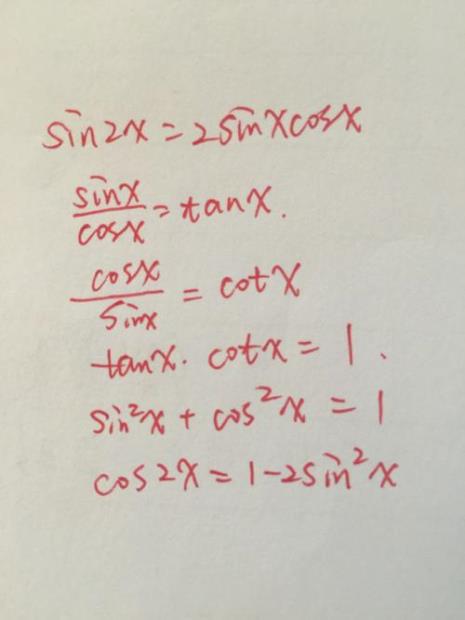 sin2x=2sinxcosx
sinx/cosx=tanx.
cosx/sinx=cotx
tanx·cotx=1.
sin²x+cos²x=1
cos2x=1-2sin²x